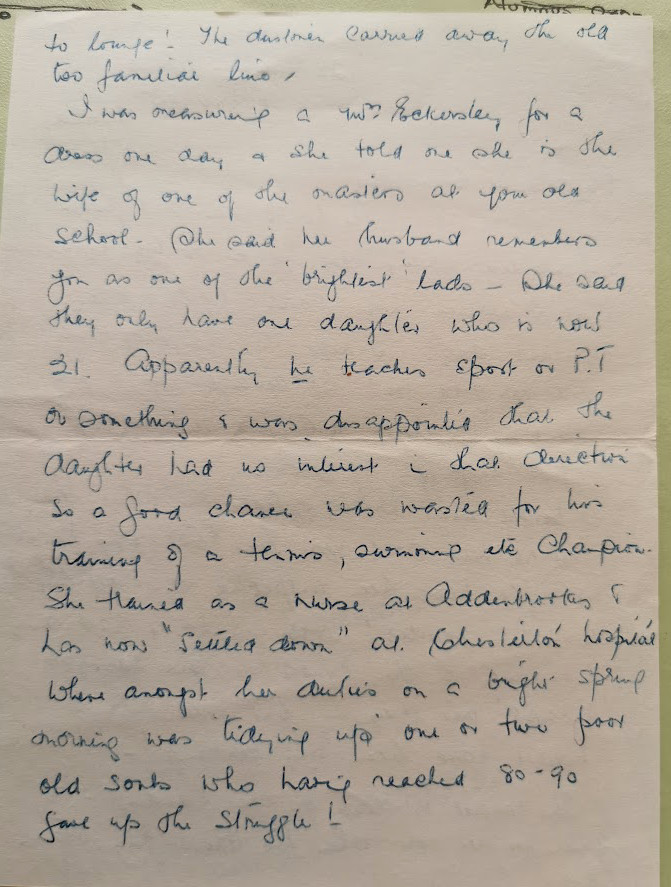 to lounge! The dustmen carried away the old
too familiar lino,
I was measuring a Mrs Eckersley for a
dress one day & she told me she is the
wife of one of the masters at your old
school. She said her husband remembers
you as one of the 'brightest' lads – She said
they only have one daughter who is now
21. Apparently he teaches sport or P.T
or something & was disappointed that the
daughter had no interest in that direction
so a good chance was wasted for his
training of a tennis, swimming etc Champion.
She trained as a nurse at Addenbrookes &
has now "settled down" at Chesterton hospital
where amongst her duties on a bright spring
morning was 'tidying up' one or two poor
old souls who having reached 80-90
gave up the struggle!